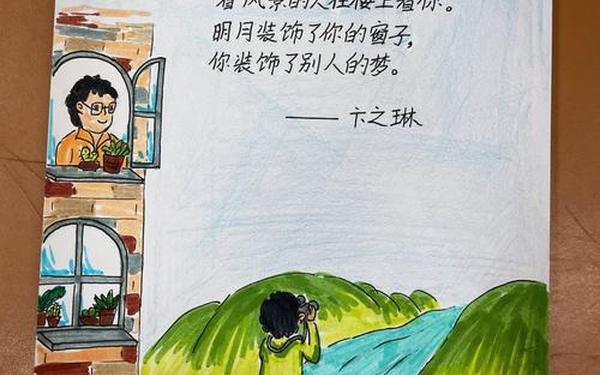 看风景的人在楼上看你。
明月装饰了你的窗子,
你装饰了别人的梦。
——卞之琳